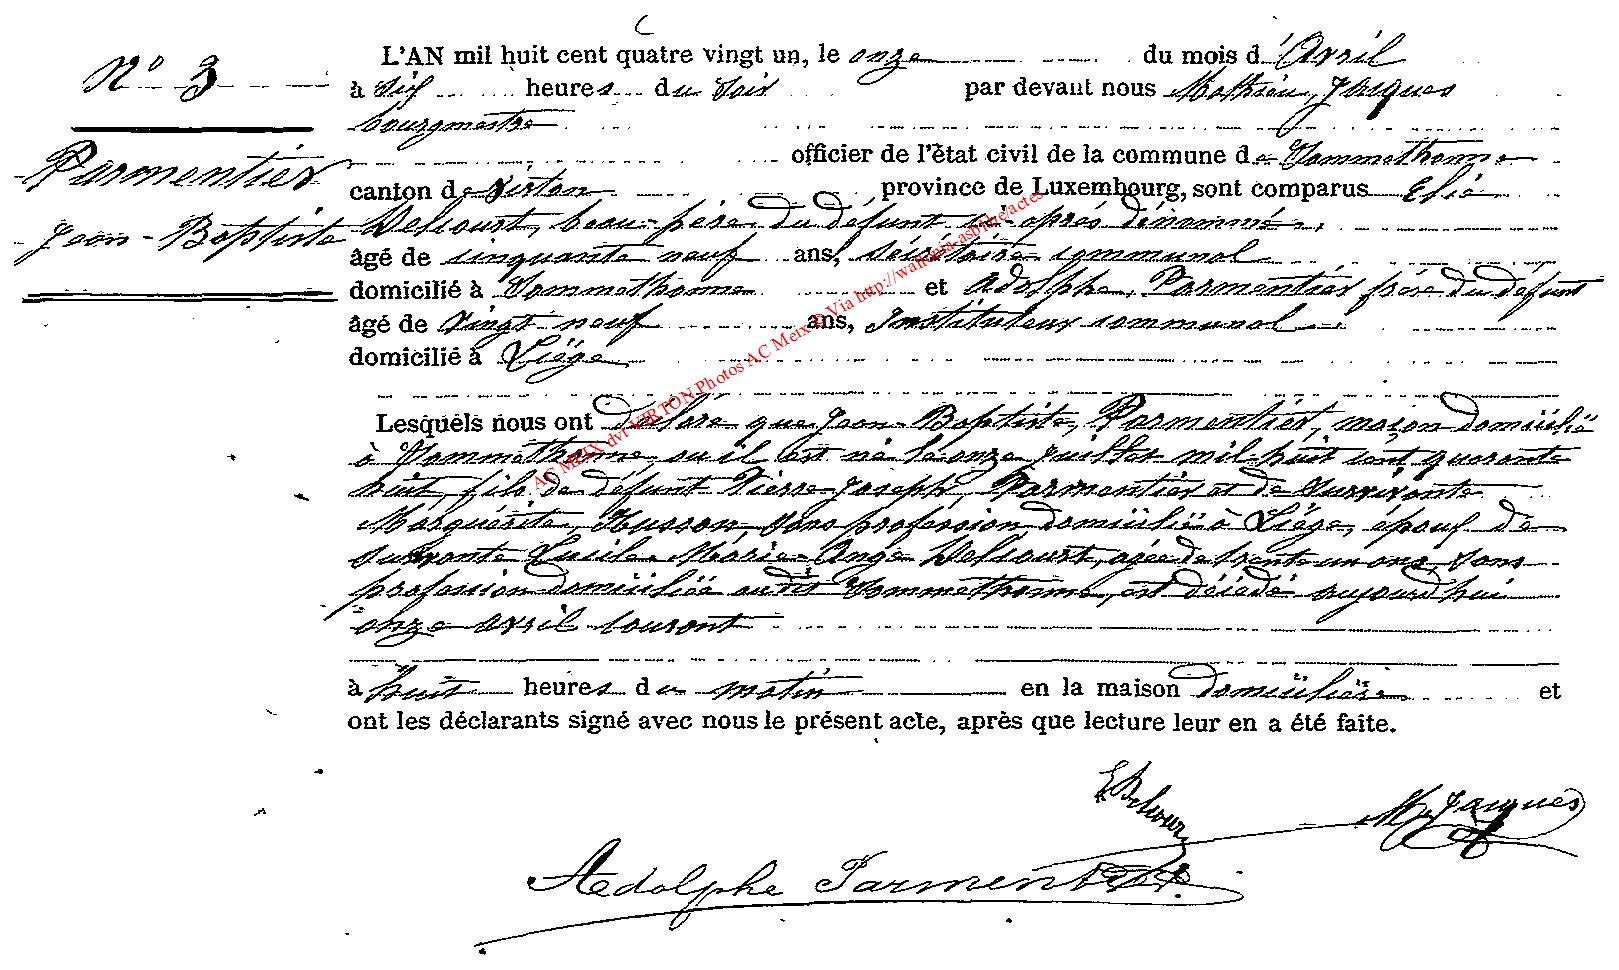 N° 3
Parmentier
Jean-Baptiste
L'AN mil huit cent quatre vingt un, le onze du mois d'Avril
à six heures du soir par devant nous Mathieu, Jacques
bourgmestre
officier de l'état civil de la commune de Sommethonne
canton de Virton province de Luxembourg, sont comparus Elie
Delcourt, beau-père du défunt ci-après dénommé,
âgé de cinquante neuf ans, sécrétaire communal
domicilié à Sommethonne et Adolphe, Parmentier frère du défunt
âgé de vingt neuf ans, Instituteur communal
domicilié à Liége
Lesquels nous ont déclaré que Jean-Baptiste, Parmentier, maçon domicilié
à Sommethonne, où il est né le onze juillet mil huit cent quarante
huit, fils de défunt Pierre Joseph, Parmentier et de survivante
Marguérite, Husson, sans profession domiciliée à Liége, époux de
survivante Lucile Marie-Ange Delcourt, agée de trente un ans, sans
profession domiciliée au dit Sommethonne, est décédé aujourd'hui
onze avril courant
à huit heures du matin en la maison domiciliaire et
ont les déclarants signé avec nous le présent acte, après que lecture leur en a été faite.
E Delcourt
M. Jacques
Adolphe Parmentier
AC MeiX dvt VIRTON Photos AC Meix © Via http://wallonia-asbl.be/actes